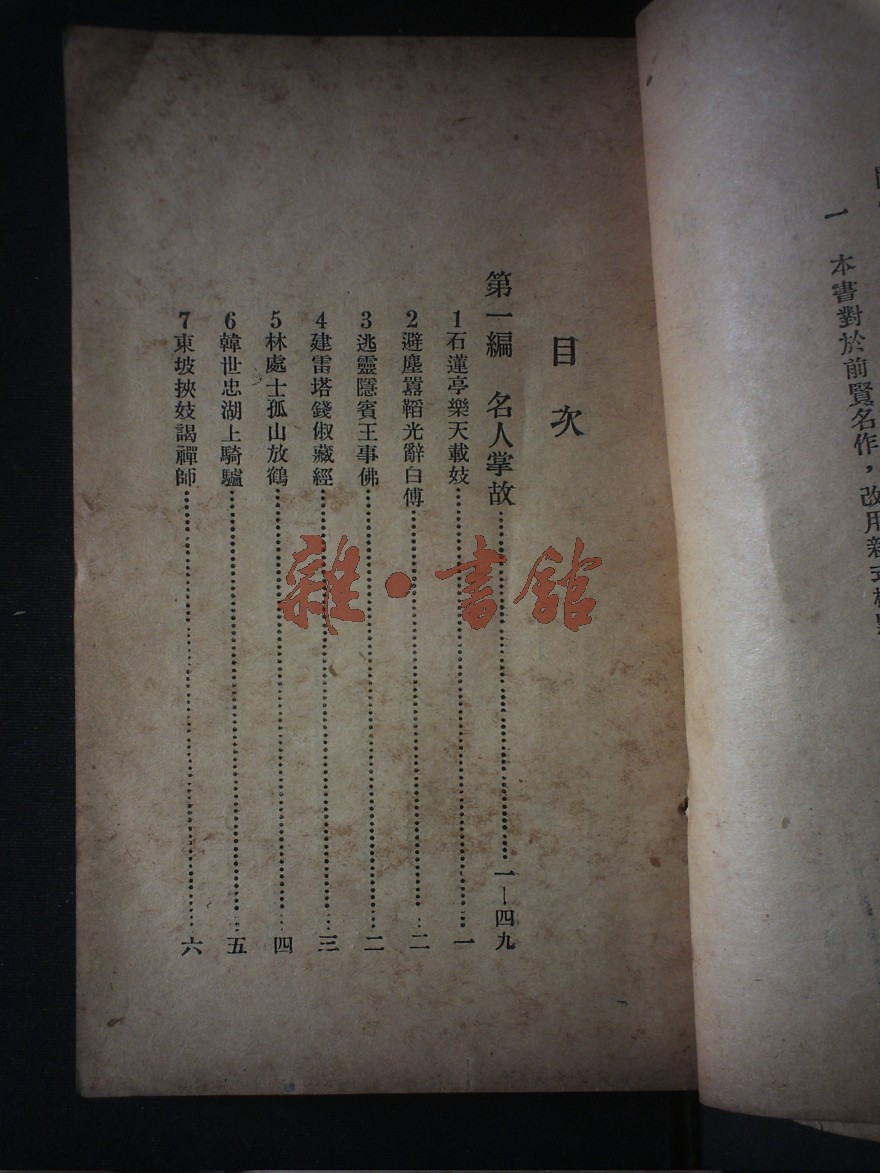 一　本書對於前賢名作，改用新式
目次
第一編　名人掌故……一—四九
1石蓮亭樂天載妓……一
2避塵囂韜光辭白傅……二
3逃靈隱賓王事佛……二
4建雷塔錢俶藏經……三
5林處士孤山放鶴……四
6韓世忠湖上騎驢……五
7東坡挾妓謁禪師……六
雜·書館